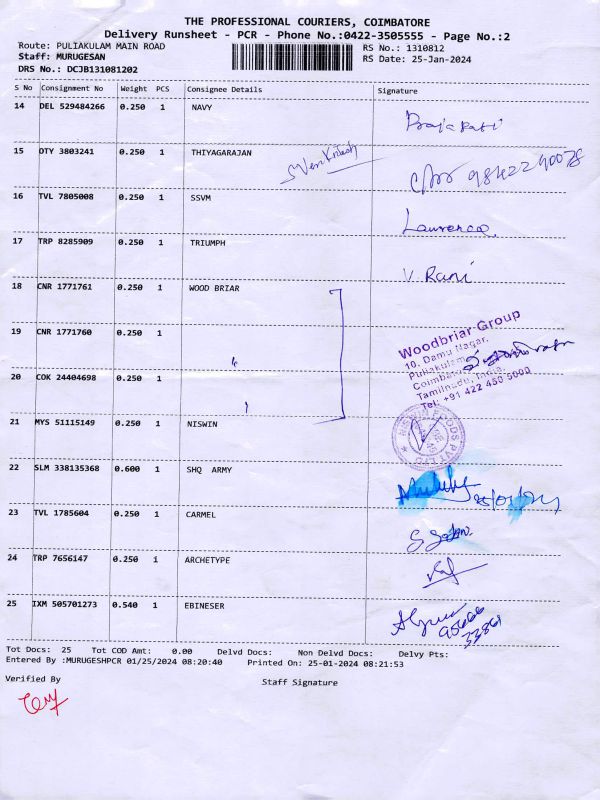 THE PROFESSIONAL COURIERS, COIMBATORE
Delivery Runsheet - PCR - Phone No.:0422-3505555 - Page No.:2
Route: PULIAKULAM MAIN ROAD RS No.: 1310812
Staff: MURUGESAN RS Date: 25-Jan-2024
DRS No.: DCJB131081202
S No Consignment No Weight PCS Consignee Details Signature
14 DEL 529484266 0.250 1 NAVY
15 DTY 3803241 0.250 1 THIYAGARAJAN S Venkitesh 9842240078
16 TVL 7805008 0.250 1 SSVM Lawrence
17 TRP 8285909 0.250 1 TRIUMPH V. Rani
18 CNR 1771761 0.250 1 WOOD BRIAR
19 CNR 1771760 0.250 1
Woodbriar Group
10, Damu Nagar,
Puliakulam
Coimbatore
Tamilnadu, India.
Tel: +91 422 450 5000
20 COK 24404698 0.250 1
21 MYS 51115149 0.250 1 NISWIN
22 SLM 338135368 0.600 1 SHQ ARMY 25/01/24
23 TVL 1785604 0.250 1 CARMEL
24 TRP 7656147 0.250 1 ARCHETYPE
25 IXM 505701273 0.540 1 EBINESER
Tot Docs: 25 Tot COD Amt: 0.00 Delvd Docs: Non Delvd Docs: Delvy Pts:
Entered By :MURUGESHPCR 01/25/2024 08:20:40 Printed On: 25-01-2024 08:21:53
Verified By Staff Signature